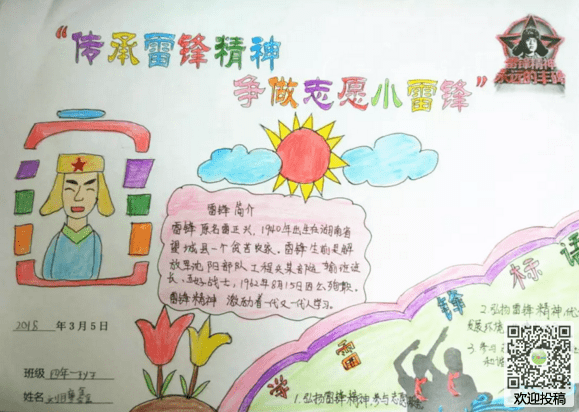 “传承雷锋精神
争做志愿小雷锋”
雷锋精神
永远的丰碑
雷锋简介
雷锋原名雷正兴，1940年出生在湖南省
望城县一个贫苦农家。雷锋生前是解
放军沈阳部队工程兵某部运输连班
长、五好战士，1962年8月15日因公殉职。
雷锋精神 激励着一代又一代人学习。
2018 年3月5日
班级
姓名
锋 标 语
2.弘扬雷锋精神,
雷
1.弘扬雷锋精神,参与志愿
欢迎投稿